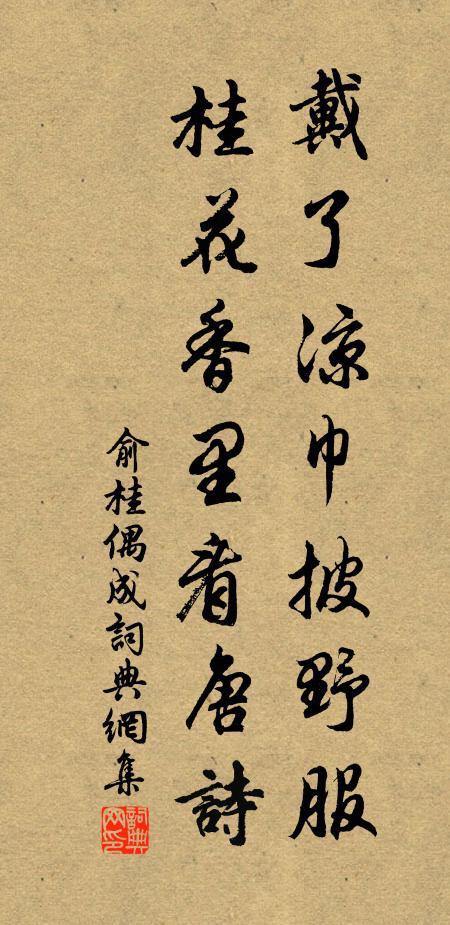 戴了涼巾披野服
桂花香里看唐詩
俞桂偶成詞典網集
詞典網印